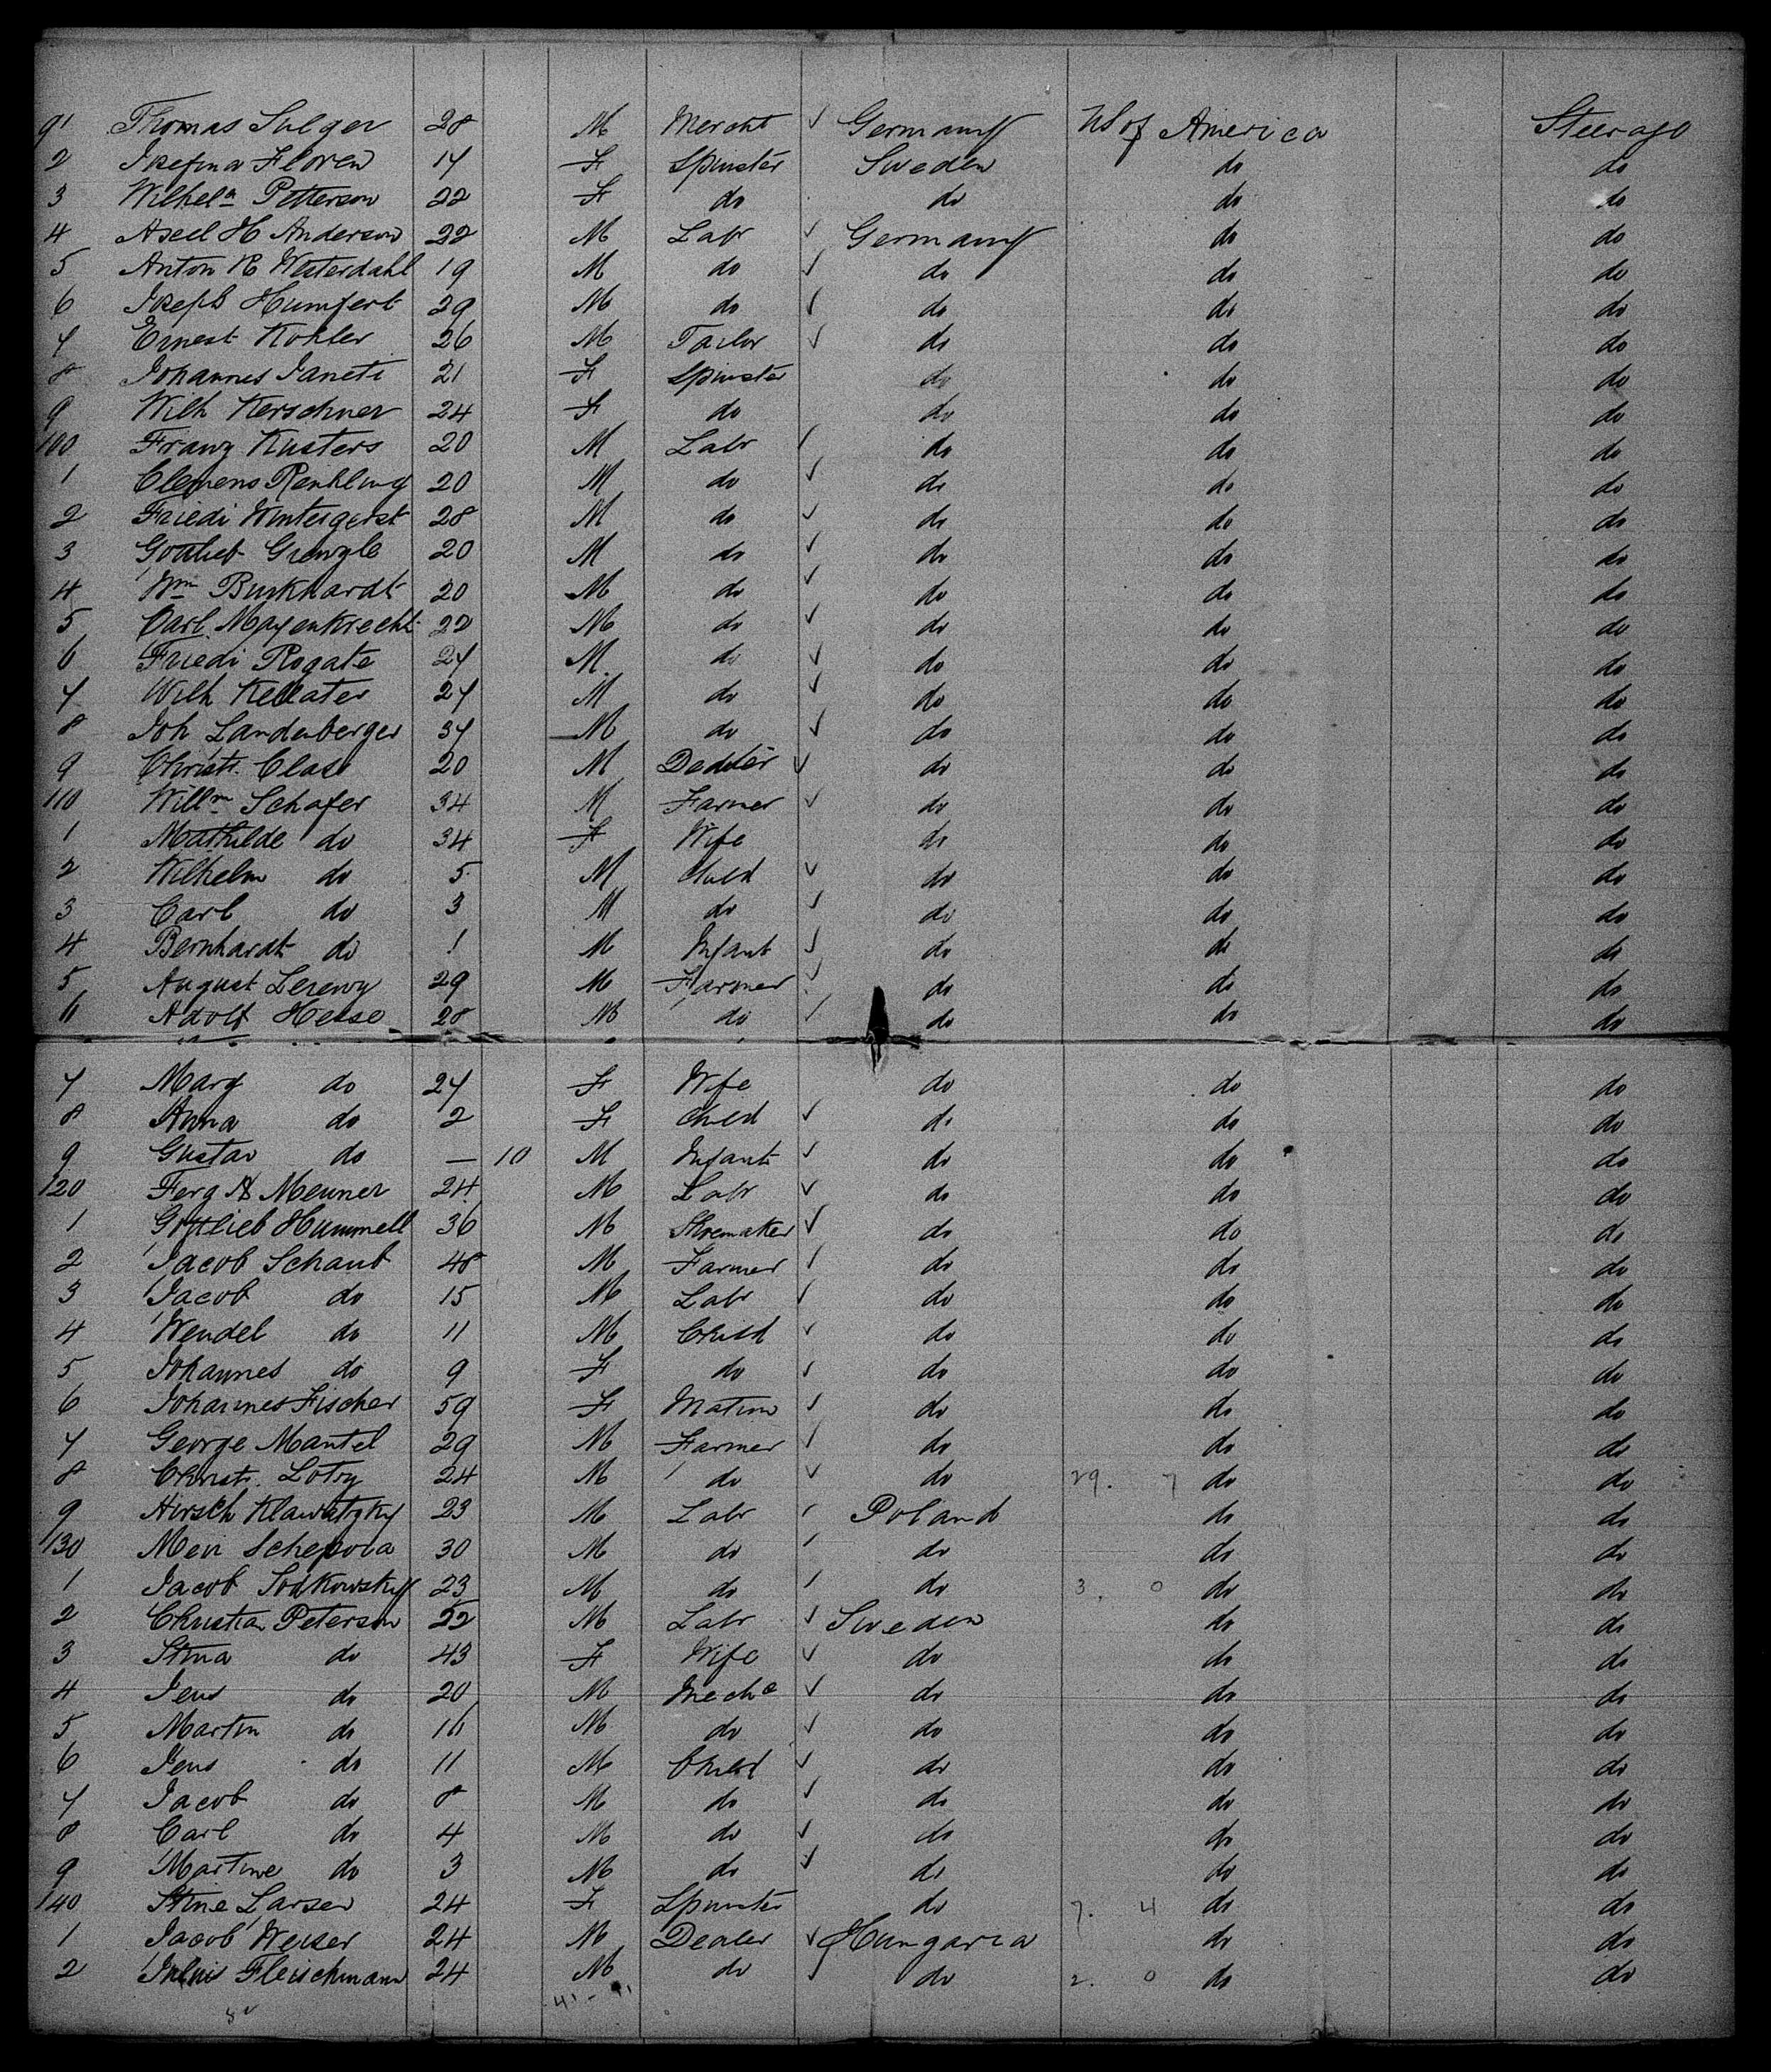 91 Thomas Sulger 28 M Mercht ✓ Germany US of America Steerage
2 Josefina Floren 17 F Spinster Sweden do do
3 Wilhela Petterson 22 F do do do do
4 Axel H Anderson 22 M Labr ✓ Germany do do
5 Anton R Westerdahl 19 M do ✓ do do do
6 Joseph Humfert 29 M do ✓ do do do
7 Ernest Kohler 26 M Tailor ✓ do do do
8 Johannes Janeti 21 F Spinster do do do
9 Wilh Kerschner 24 F do do do do
100 Franz Kusters 20 M Labr ✓ do do do
1 Clemens 20 M do ✓ do do do
2 Friedi Wintergerst 28 M do ✓ do do do
3 Gottlieb 20 M do ✓ do do do
4 Wm Burkhardt 20 M do ✓ do do do
5 Carl Mayenknecht 22 M do ✓ do do do
6 Friedi Rogate 27 M do ✓ do do do
7 Wilh Kellater 27 M do ✓ do do do
8 Joh Landenberger 37 M do ✓ do do do
9 Christi. Class 20 M ✓ do do do
110 Willm Schafer 34 M Farmer ✓ do do do
1 Mathilde do 34 F Wife do do do
2 Wilhelm do 5 M Child ✓ do do do
3 Carl do 3 M do ✓ do do do
4 Bernhardt do 1 M Infant ✓ do do do
5 August 29 M Farmer ✓ do do do
6 Adolf Hesse 28 M do ✓ do do do
7 Mary do 27 F Wife do do do
8 Anna do 2 F Child ✓ do do do
9 Gustav do — 10 M Infant ✓ do do do
120 Ferg A Meuner 24 M Labr ✓ do do do
1 Gottlieb Hummell 36 M Shoemaker ✓ do do do
2 Jacob Schaub 48 M Farmer ✓ do do do
3 Jacob do 15 M Labr ✓ do do do
4 Wendel do 11 M Child ✓ do do do
5 Johannes do 9 F do ✓ do do do
6 Johannes Fischer 59 F Matron ✓ do do do
7 George Mantel 29 M Farmer ✓ do do do
8 Christi. Lotry 24 M do ✓ do 29. 7 do do
9 Hirsch Klawatzky 23 M Labr ✓ Poland do do
130 Meri Schepova 30 M do ✓ do do do
1 Jacob Sodkowsky 23 M do ✓ do 3. 0 do do
2 Christian Peterson 52 M Labr ✓ Sweden do do
3 Stina do 43 F Wife ✓ do do do
4 Jens do 20 M Mechc ✓ do do do
5 Martin do 16 M do ✓ do do do
6 Jens do 11 M Child ✓ do do do
7 Jacob do 8 M do ✓ do do do
8 Carl do 4 M do ✓ do do do
9 Martine do 3 M do ✓ do do do
140 Stine Larsen 24 F Spinster do 7. 4 do do
1 Jacob Weiser 24 M Dealer ✓ Hungaria do do
2 Julius Fleischmann 24 M do ✓ do 2. 0 do do